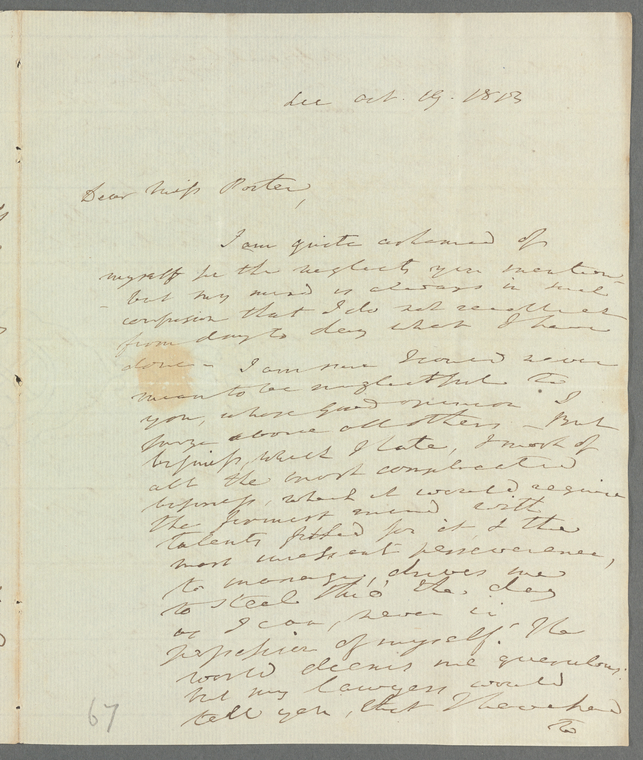 Lee Oct. 19. 1813
Dear Miss Porter,
I am quite ashamed of
myself for the neglects you mention
- but my mind is always in such
confusion that I do not recollect
from day to day what I have
done - I am sure I could never
mean to be neglectful to
you, whose good opinion I
prize above all others - But
business, which I hate, & most of
all the most complicated
business, which it would require
the firmest mind with
talents fitted for it, & the
most incessant perseverance,
to manage, drives me
to steel thro' the day
as I can, never in
possession of myself. The
world deems me querulous:
but my lawyers would
tell you, that I have had
to
67